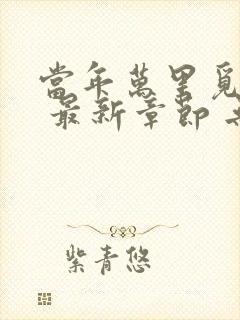 當年萬里覓
最新章節
紫青悠